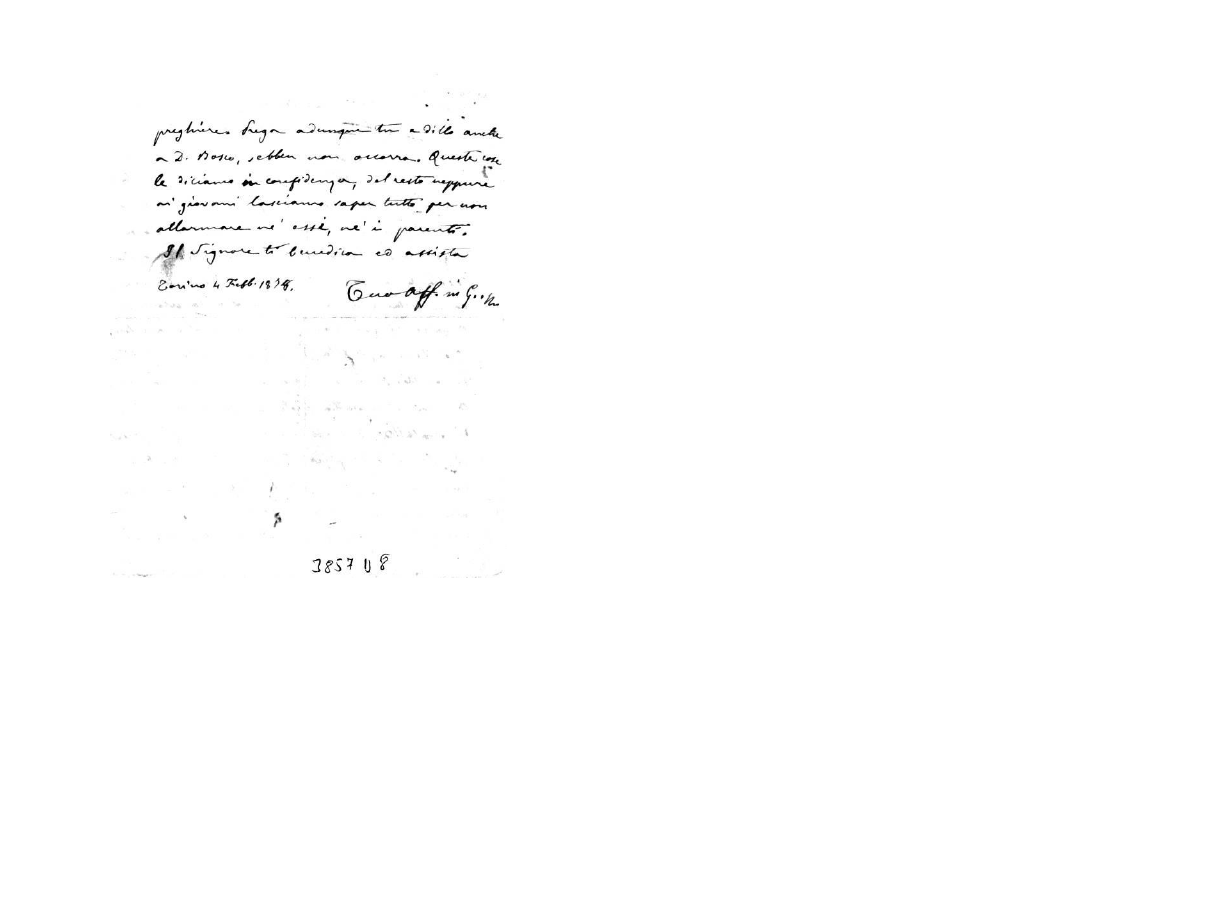 preghiere. Prega adunque tu e dillo anche
a D. Bosco, sebben non occorra. Queste cose
le diciamo in confidenza, del resto neppure
ai giovani lasciamo saper tutto per non
allarmare nè essi, nè i parenti.
Il Signore ti benedica ed assista
Torino 4 Febb. 18
Tuo Aff. in G.
3857 D 8